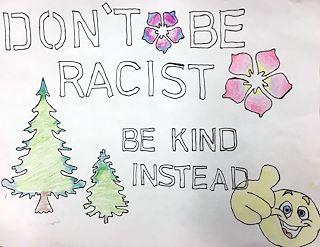 DON'T BE
RACIST
BE KIND
INSTEAD